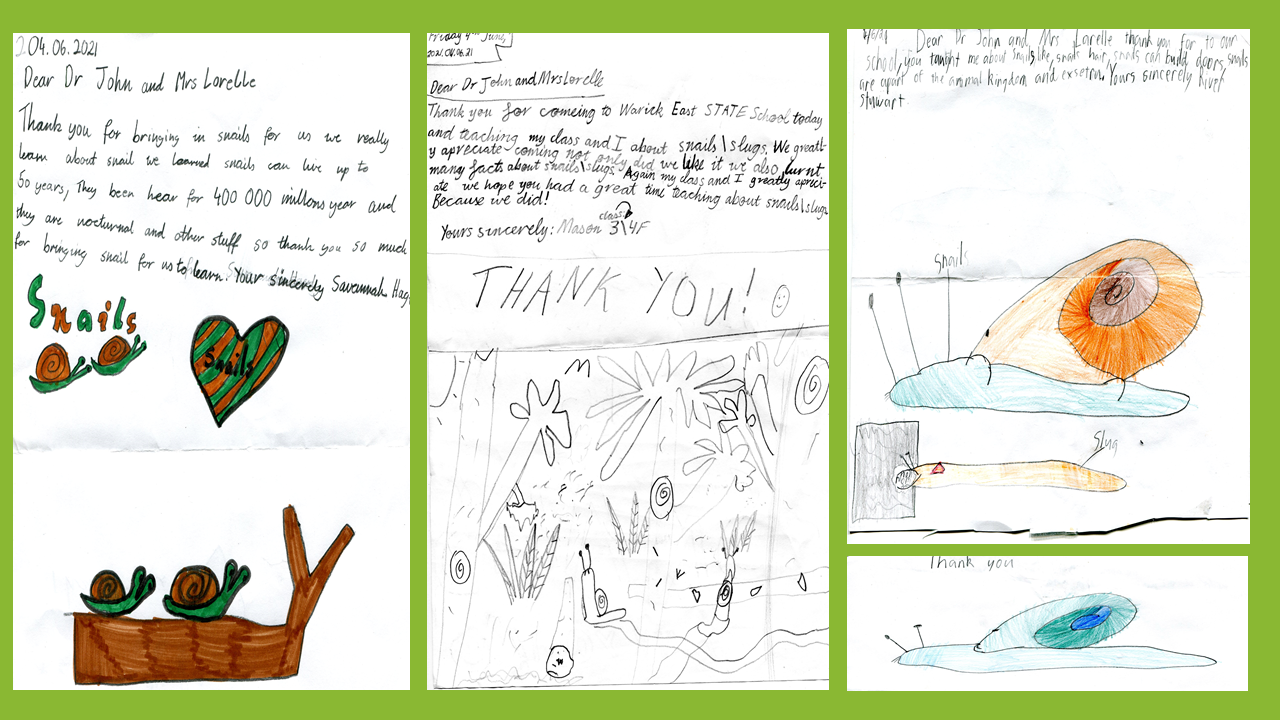 204.06.2021
Dear Dr John and Mrs Lorelle
Thank you for bringing in snails for us we really
learn about snail we learned snails can live up to
50 years, They been hear for 400 000 millons year and
they are nocturnal and other stuff so thank you so much
for bringing snail for us to learn. Your sincerely Savannah Hag
Snails
Snails
Friday 4th June,
2021.04.06.21
Dear Dr John and Mrs Lorelle
Thank you for comeing to Warick East STATE School today
and teaching my class and I about snails\slugs. We greatl-
y apreciate coming not only did we like it we also lurnt
many facts about snails\slugs. Again my class and I greatly apreci-
ate we hope you had a great time teaching about snails\slugs
Because we did!
class
Yours sincerely: Mason 3\4F
THANK YOU!
Dear Dr John and Mrs Larelle thank you for to our
school, you taught me about snails like, snails hair, snails can build doors, snails
are apart of the animal kingdom and exsetra. Yours sincerely River
Stuwart.
snails
Slug
Thank you